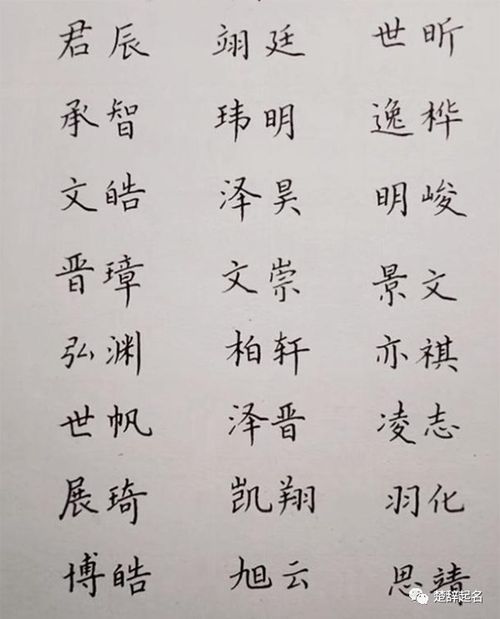 君辰 翊廷 世昕
承智 玮明 逸桦
文皓 泽昊 明峻
晋璋 文崇 景文
弘渊 柏轩 亦祺
世帆 泽晋 凌志
展琦 凯翔 羽化
博皓 旭云 思靖
楚辞起名